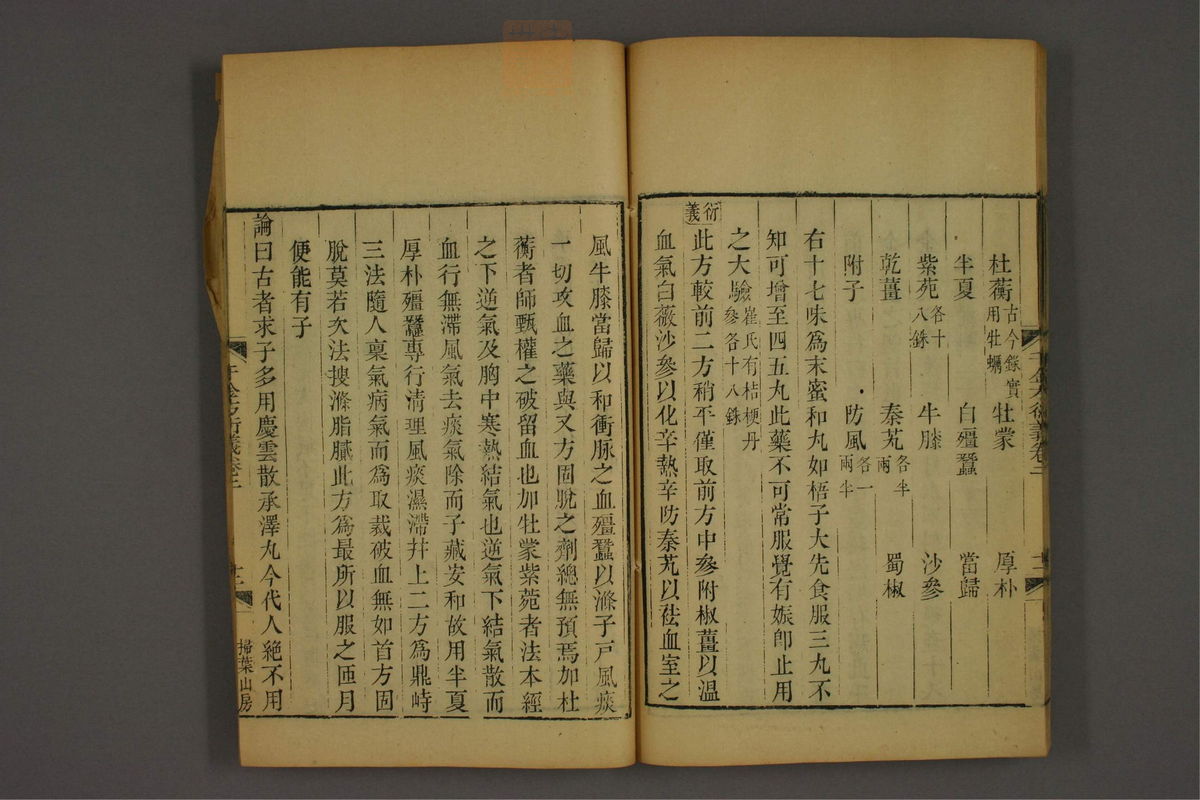 杜蘅古今錄實用牡蠣 牡蒙 厚朴
半夏 白殭蠶 當歸
紫苑各十八銖 牛膝 沙參
乾薑 秦艽各半兩 蜀椒
附子 防風各一兩半
右十七味爲末蜜和丸如梧子大先食服三丸不
知可增至四五丸此藥不可常服覺有娠卽止用
之大驗崔氏有桔梗丹參各十八銖
衍義
此方較前二方稍平僅取前方中參附椒薑以溫
血氣白薇沙參以化辛熱辛防秦艽以祛血室之
風牛膝當歸以和衝脉之血殭蠶以滌子戸風痰
一切攻血之藥與又方固脫之劑總無預焉加杜
蘅者師甄權之破留血也加牡蒙紫菀者法本經
之下逆氣及胸中寒熱結氣也逆氣下結氣散而
血行無滯風氣去痰氣除而子藏安和故用半夏
厚朴殭蠶專行清理風痰濕滯幷上二方爲鼎峙
三法隨人稟氣病氣而爲取裁破血無如首方固
脫莫若次法搜滌脂膩此方爲最所以服之匝月
便能有子
論曰古者求子多用慶雲散承澤丸今代人絕不用
千金方衍義卷二
十二
掃葉山房